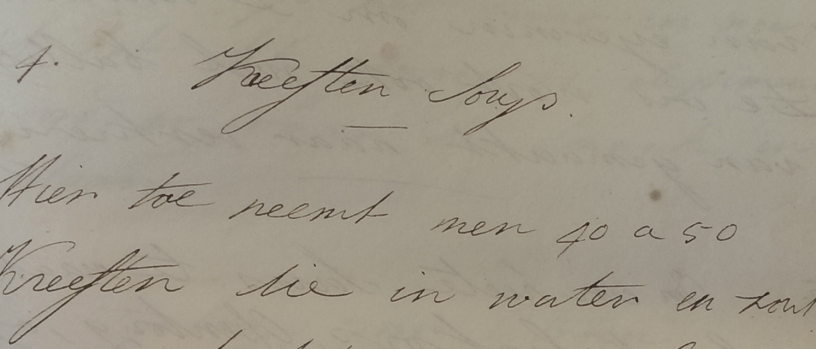 4. Kreeften Soup.
Hier toe neemt men 40 a 50
Kreeften die in water en zout